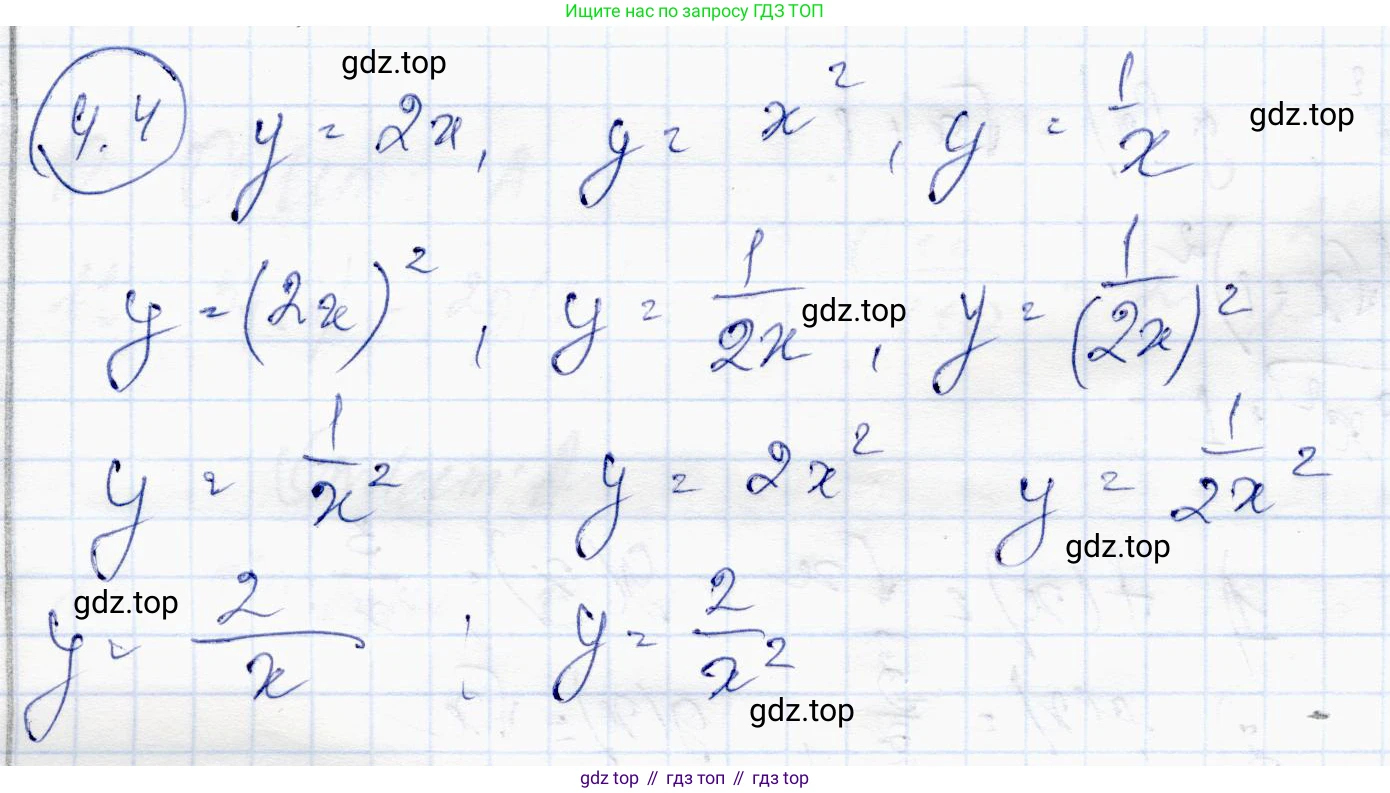 Ищите нас по запросу ГДЗ ТОП
gdz.top
4.4 y = 2x, y = x², y = 1/x gdz.top
y = (2x)², y = 1/2x gdz.top, y = 1/(2x)²
y = 1/x² y = 2x² y = 1/2x²
gdz.top
gdz.top
y = 2/x ; y = 2/x²
gdz.top
gdz top // гдз топ // гдз top